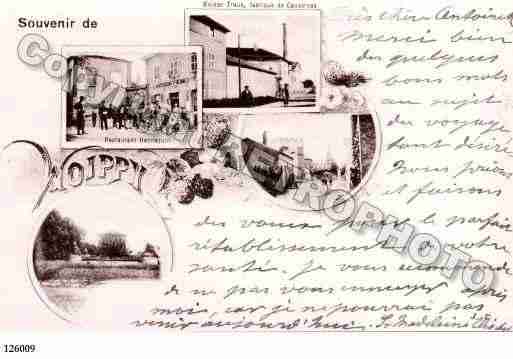 Souvenir de
MOIPPY
Maison Traux, fabrique de Conserves
Restaurant Hennequin
Très chère Antoinette
Merci bien
des quelques
bons mots
au sujet
du voyage
tant désiré
Nous prions
et faisons
des vœux pour le parfait
rétablissement de votre
santé. Je vous recommande
de ne pas vous ennuyer après
moi, car je ne pourrai pas
venir aujourd'hui. St Madeleine
COPYRIGHT METROPHOTO
126009